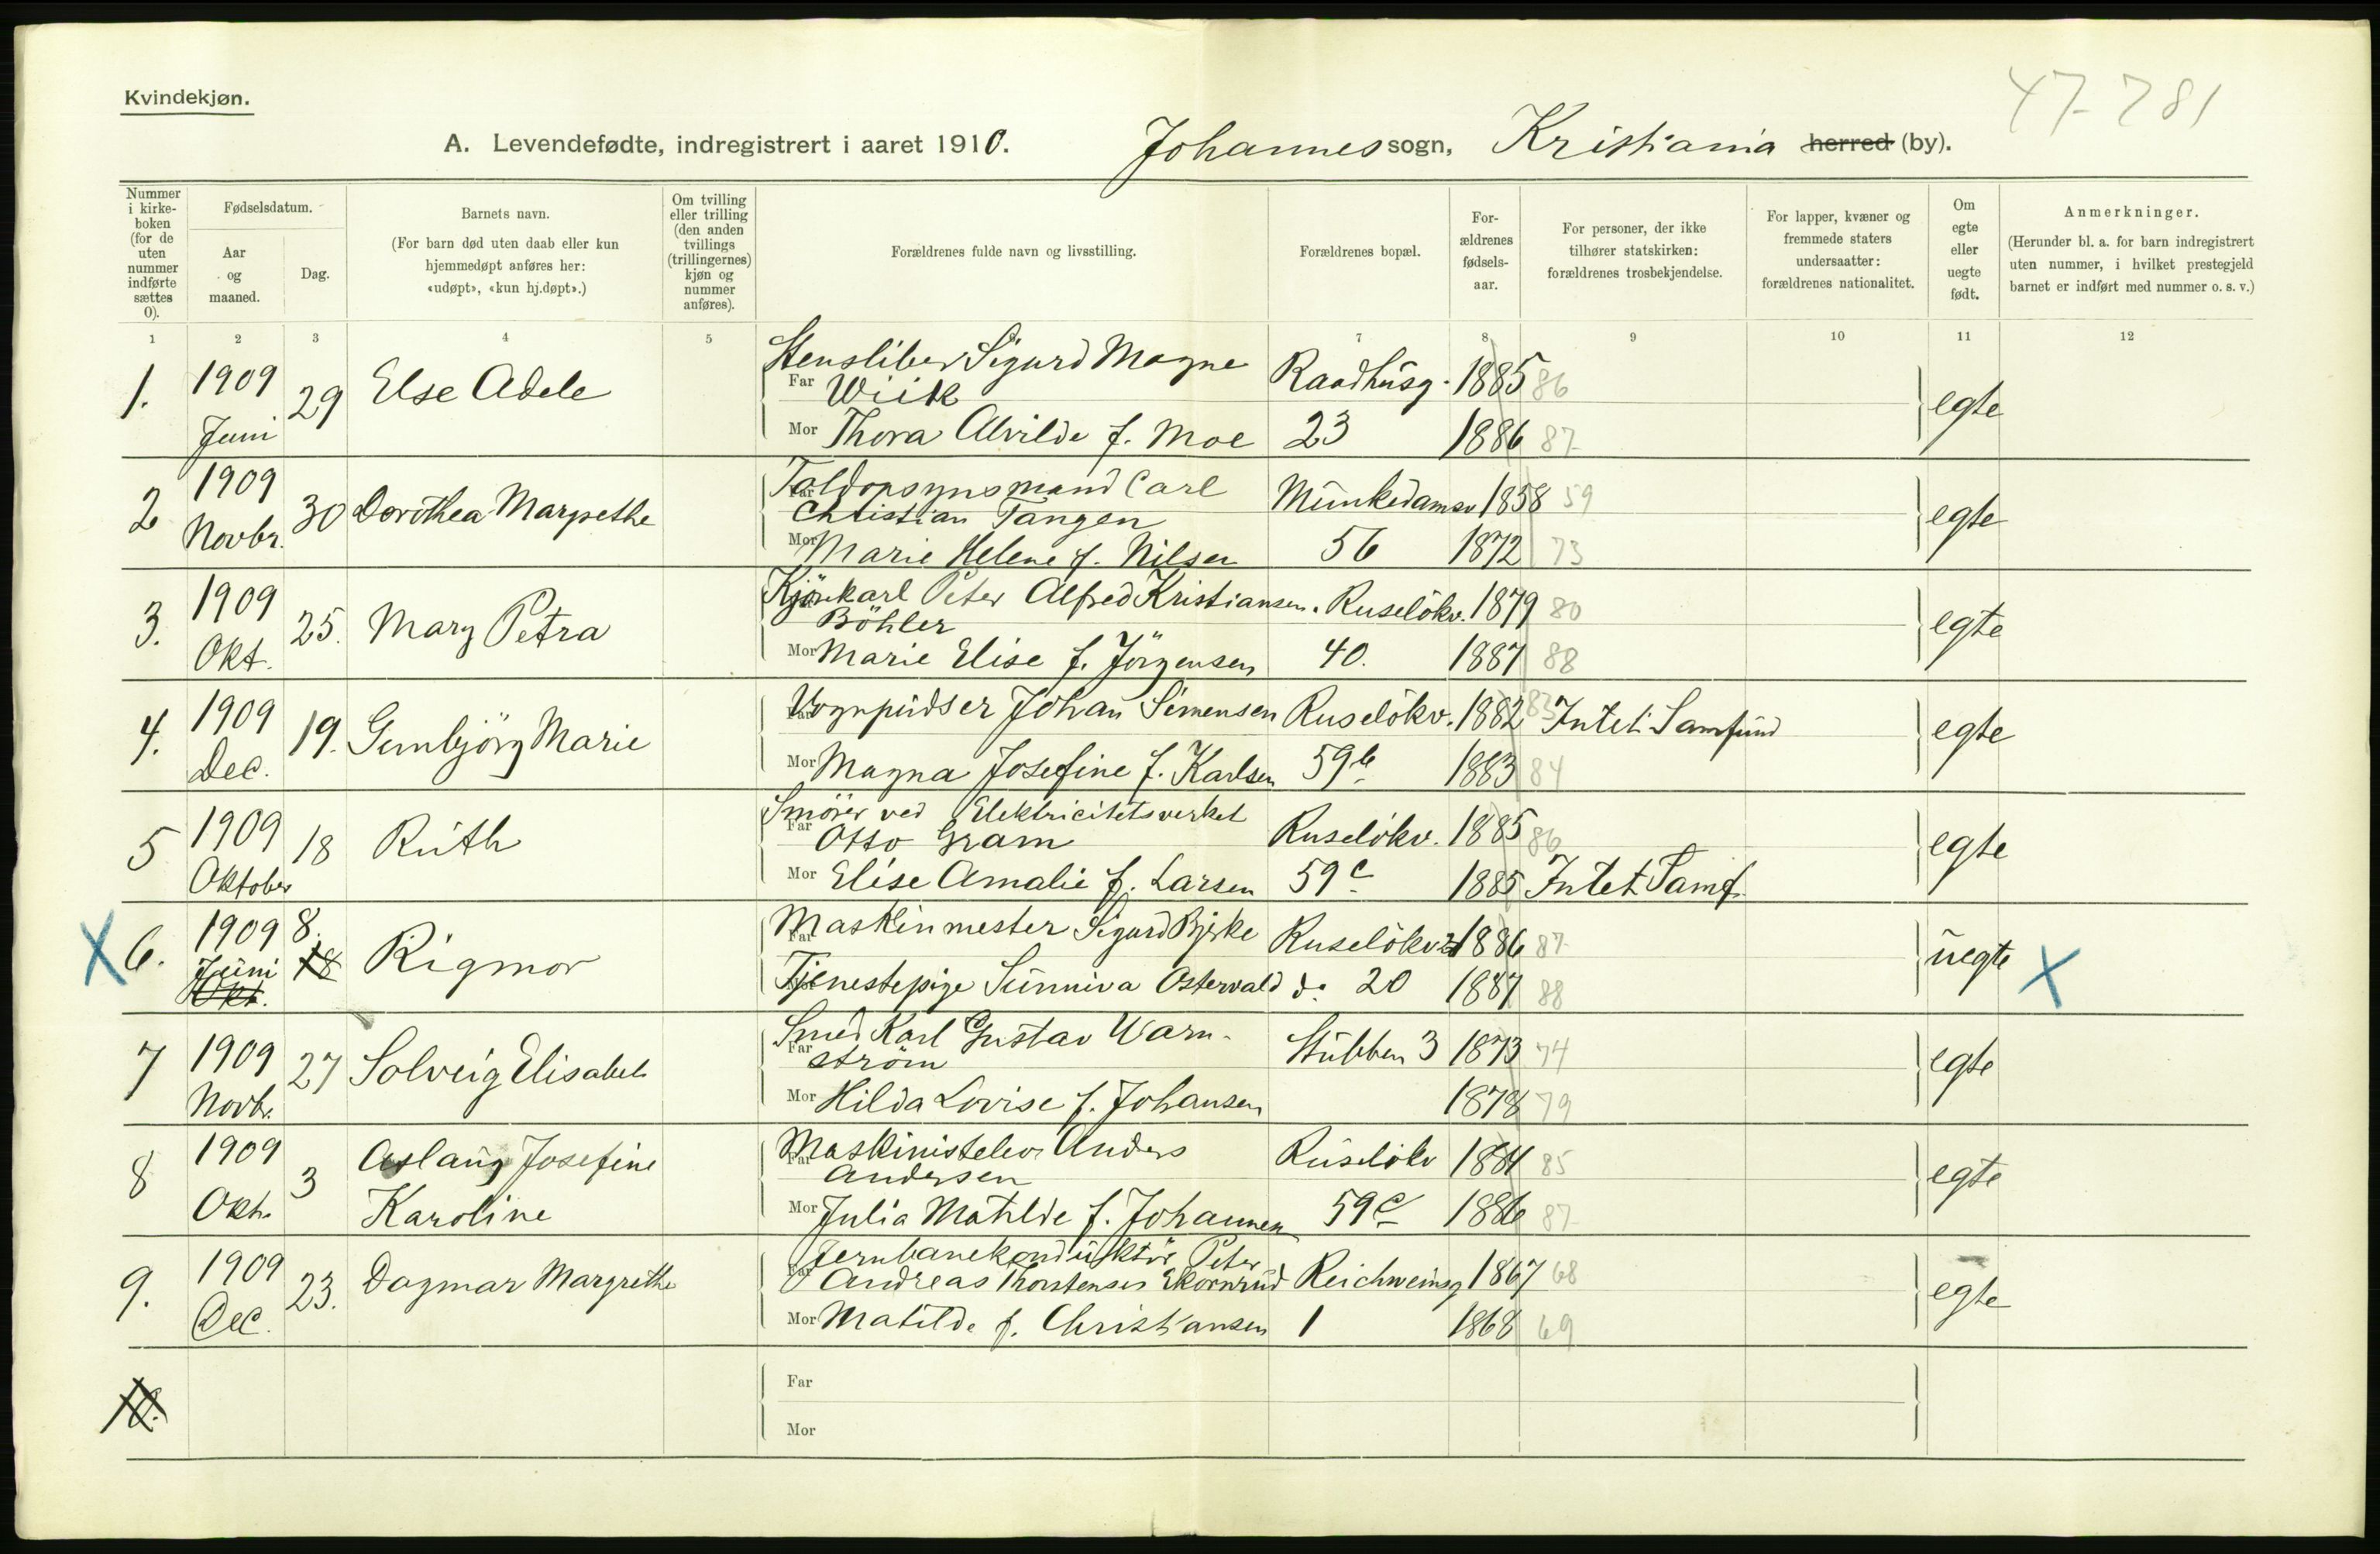 Kvindekjøn.
47-781
A. Levendefødte, indregistrert i aaret 1910. Johannes sogn, Kristiania herred (by).
Nummer i kirke-boken (for de uten nummer indførte sættes 0).
Fødselsdatum.
Aar og maaned.
Dag.
Barnets navn.
(For barn død uten daab eller kun hjemmedøpt anføres her: «udøpt», «kun hj.døpt».)
Om tvilling eller trilling (den anden tvillings (trillingernes) kjøn og nummer anføres).
Forældrenes fulde navn og livsstilling.
Forældrenes bopæl.
For-ældrenes fødsels-aar.
For personer, der ikke tilhører statskirken: forældrenes trosbekjendelse.
For lapper, kvæner og fremmede staters undersaatter: forældrenes nationalitet.
Om egte eller uegte født.
Anmerkninger.
(Herunder bl. a. for barn indregistrert uten nummer, i hvilket prestegjeld barnet er indført med nummer o. s. v.)
1 2 3 4 5 7 8 9 10 11 12
1. 1909 Juni 29 Else Adele
Stensliber Sigurd Magne
Far Wiik Raadhusg. 1885 86
Mor Thora Alvilde f. Moe 23 1886 87
egte
2 1909 Novbr. 30 Dorothea Margrethe
Toldopsynsmand Carl
Far Christian Tangen Munkedamsv 1858 59
Mor Marie Helene f. Nilsen 56 1872 73
egte
3. 1909 Okt. 25. Mary Petra
Kjørekarl Peter Alfred Kristiansen. Ruseløkv. 1879 80
Böhler
Mor Marie Elise f. Jörgensen 40. 1887 88
egte
4. 1909 Dec. 19. Gunbjörg Marie
Far Vognpudser Johan Simensen Ruselökv. 1882 83 Intet Samfund
Mor Magna Josefine f. Karlsen 59b 1883 84
egte
5 1909 Oktober 18 Ruth
Smörer ved Elektricitetsverket
Far Otto Gram Ruselökv. 1885 86
Mor Elise Amalie f. Larsen 59c 1885 Intet Samf.
egte
X 6. 1909 Juni Okt. 8. 18 Rigmor
Far Maskinmester Sigurd Bjerke Ruselökv 1886 87
Tjenestepige Sunniva Ostervald do 20 1887 88
uegte X
7 1909 Novbr. 27 Solveig Elisabeth
Smed Karl Gustav Warn-
Far ström Stubben 3 1873 74
Mor Hilda Lovise f. Johansen 1878 79
egte
8 1909 Okt. 3 Aslaug Josefine
Karoline
Maskinistelev Anders
Far Andersen Ruselökv 1884 85
Mor Julia Matilde f. Johannesen 59c 1886 87
egte
9. 1909 Dec. 23. Dagmar Margrethe
Jernbanekonduktör Peter
Far Andreas Thorstensen Ekornrud Reichweinsg 1867 68
Mor Matilde f. Christiansen 1 1868 69
egte
10.
Far
Mor